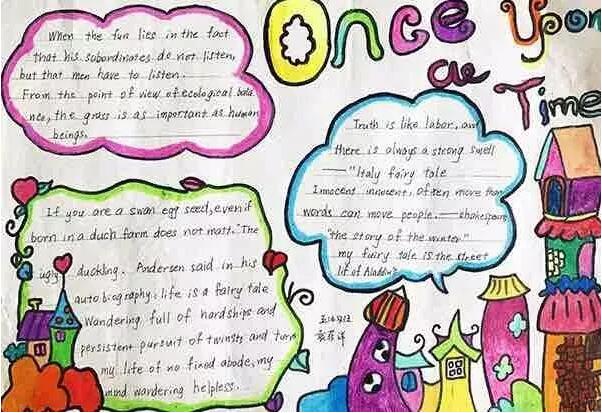 Once Upon
a
Time
When the fun lies in the fact
that his subordinates do not listen,
but that men have to listen.
From the point of view of ecological bala
nce, the grass is as important as human
beings.
Truth is like labor, an
there is always a strong smell
——"Italy fairy tale
Innocent innocent, often more than
words can move people.——shakespeare
"the story of the winter"
my fairy tale is the street
lif of Aladdin"
If you are a swan egg seed, even if
born in a duch farm does not matt. "The
ugly duckling. Andersen said in his
autobiography: life is a fairy tale
Wandering full of hardships and
persistent pursuit of twinsts and turn
my life of no fixed abode, my
mind wandering helpless.